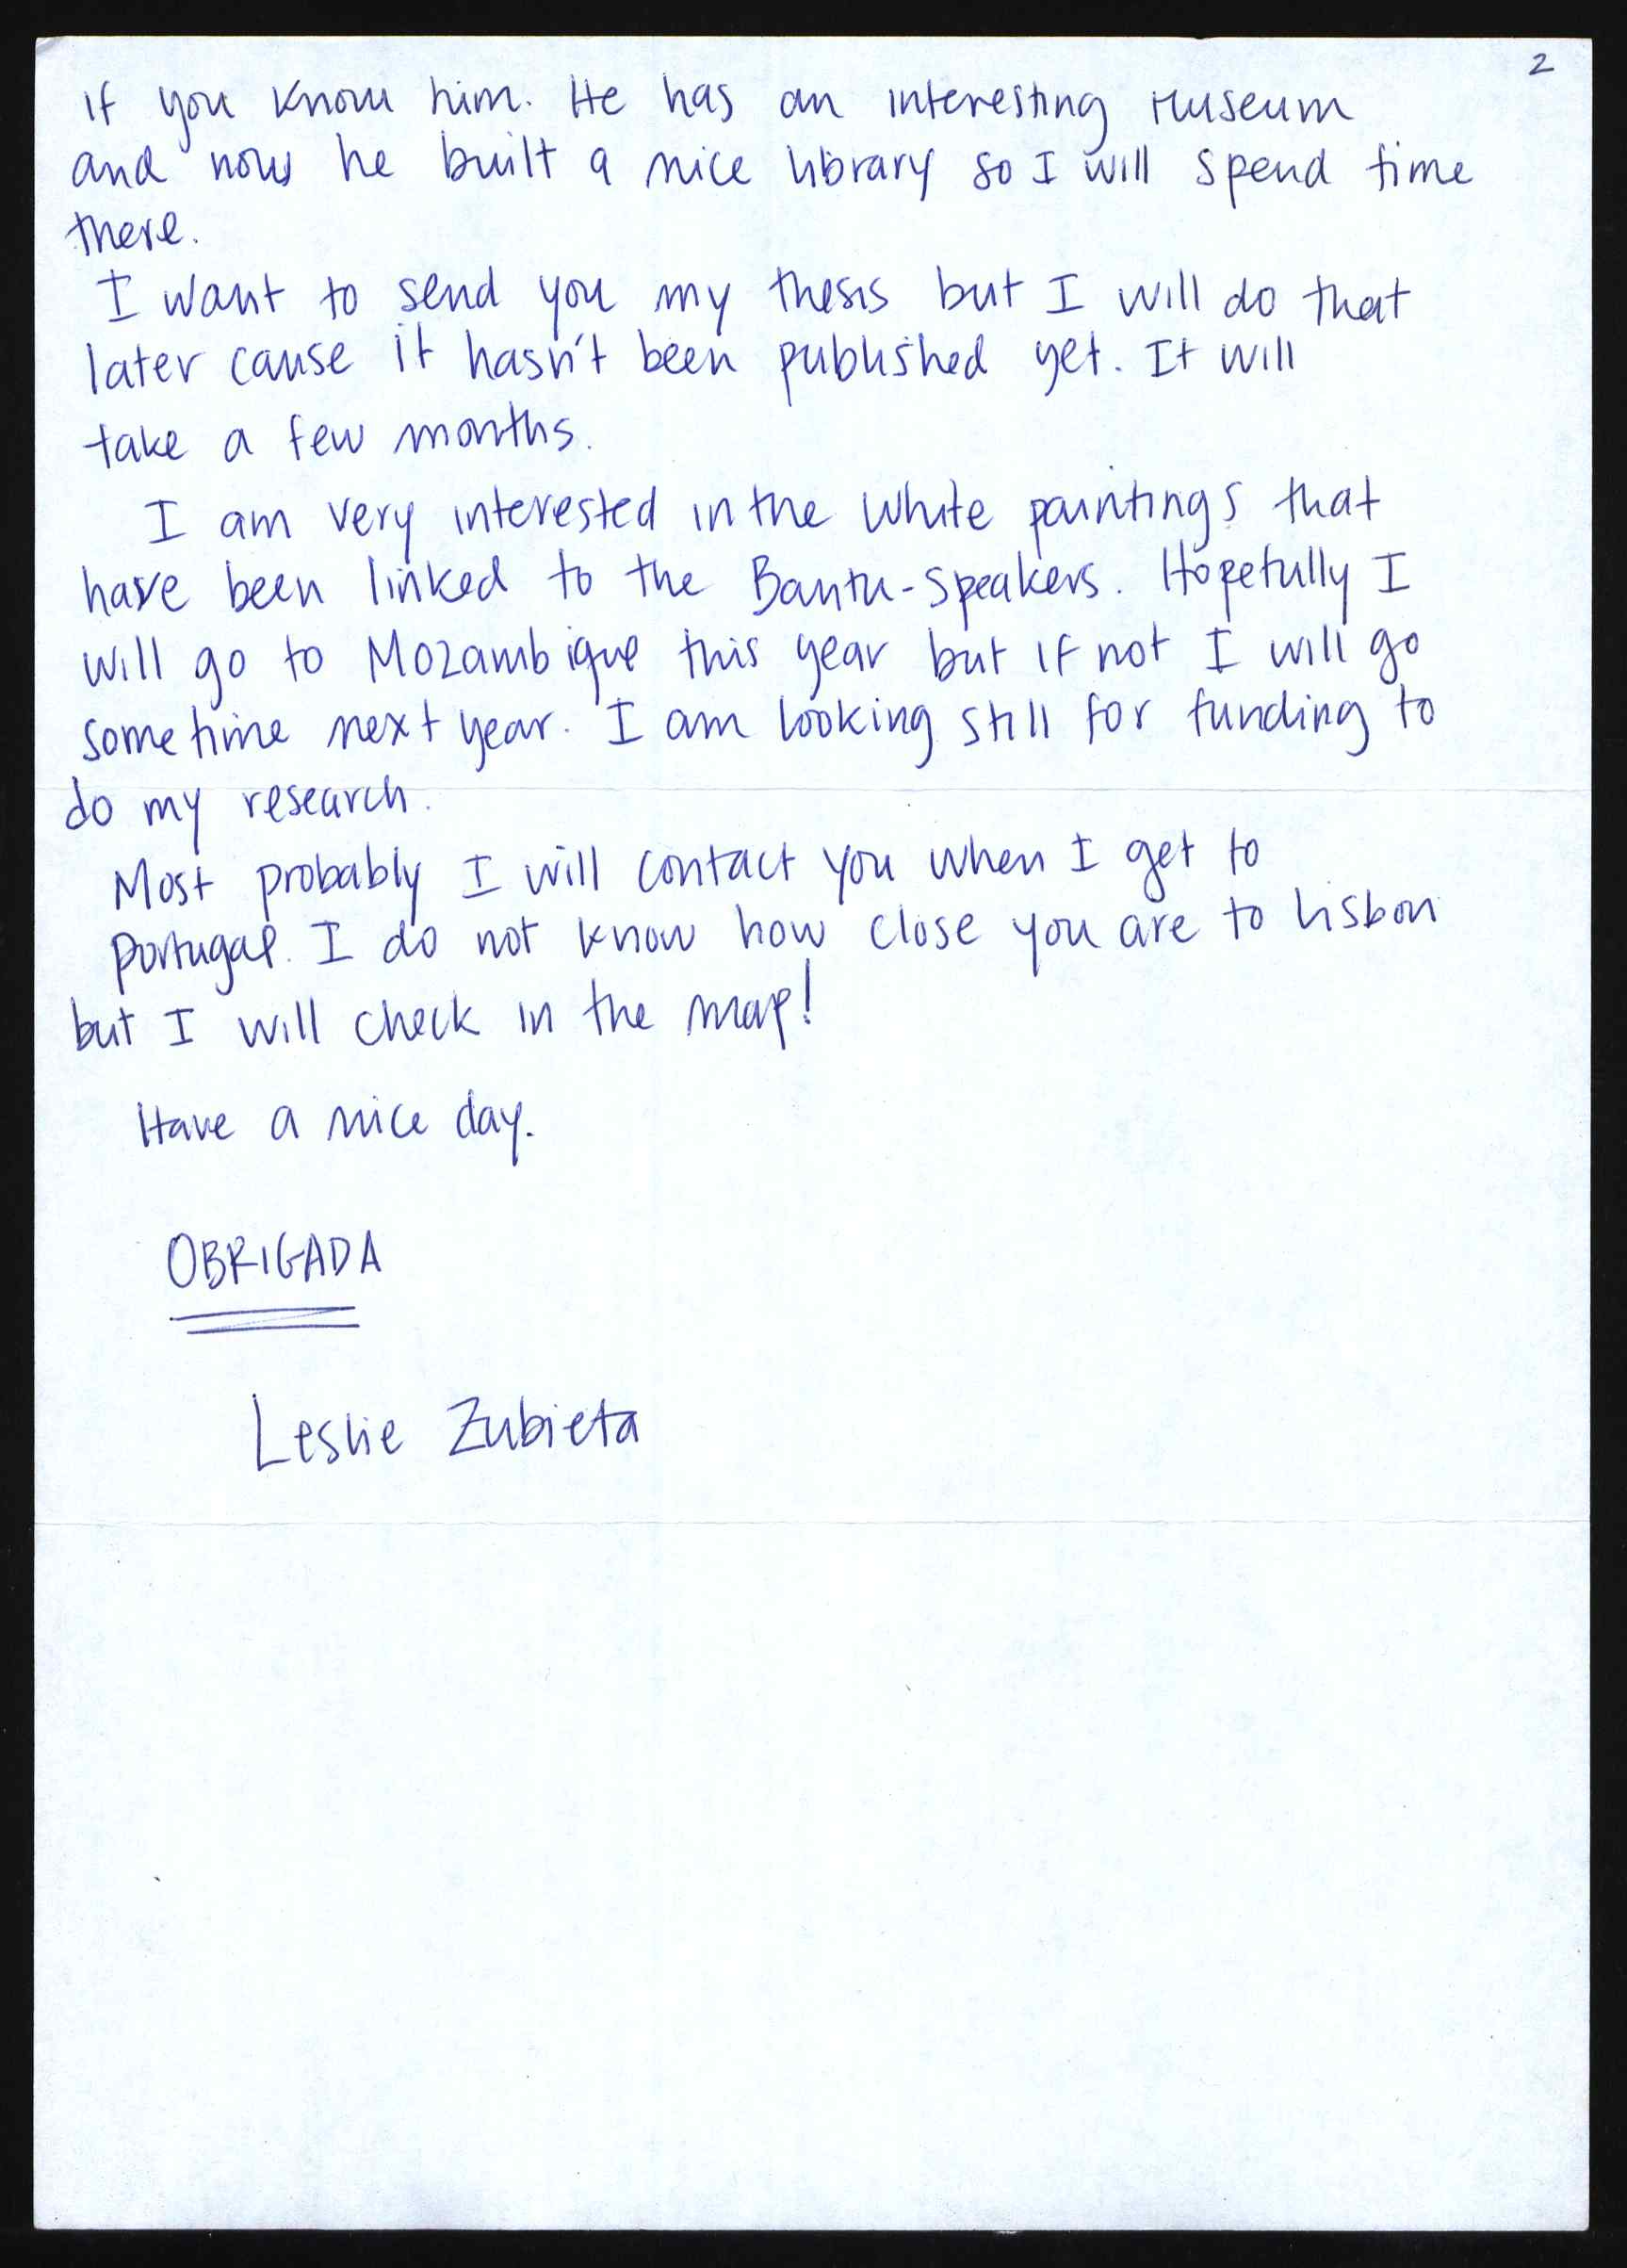 2
if you know him. He has an interesting Museum
and now he built a nice library so I will spend time
there.
I want to send you my thesis but I will do that
later cause it hasn't been published yet. It will
take a few months.
I am very interested in the white paintings that
have been linked to the Bantu-speakers. Hopefully I
will go to Mozambique this year but if not I will go
sometime next year. I am looking still for funding to
do my research.
Most probably I will contact you when I get to
Portugal. I do not know how close you are to Lisbon
but I will check in the map!
Have a nice day.
OBRIGADA
Leslie Zubieta